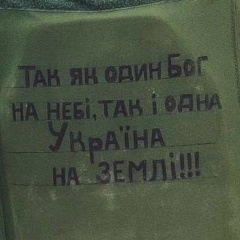 Так як один Бог
на небі, так і одна
Україна
на землі!!!